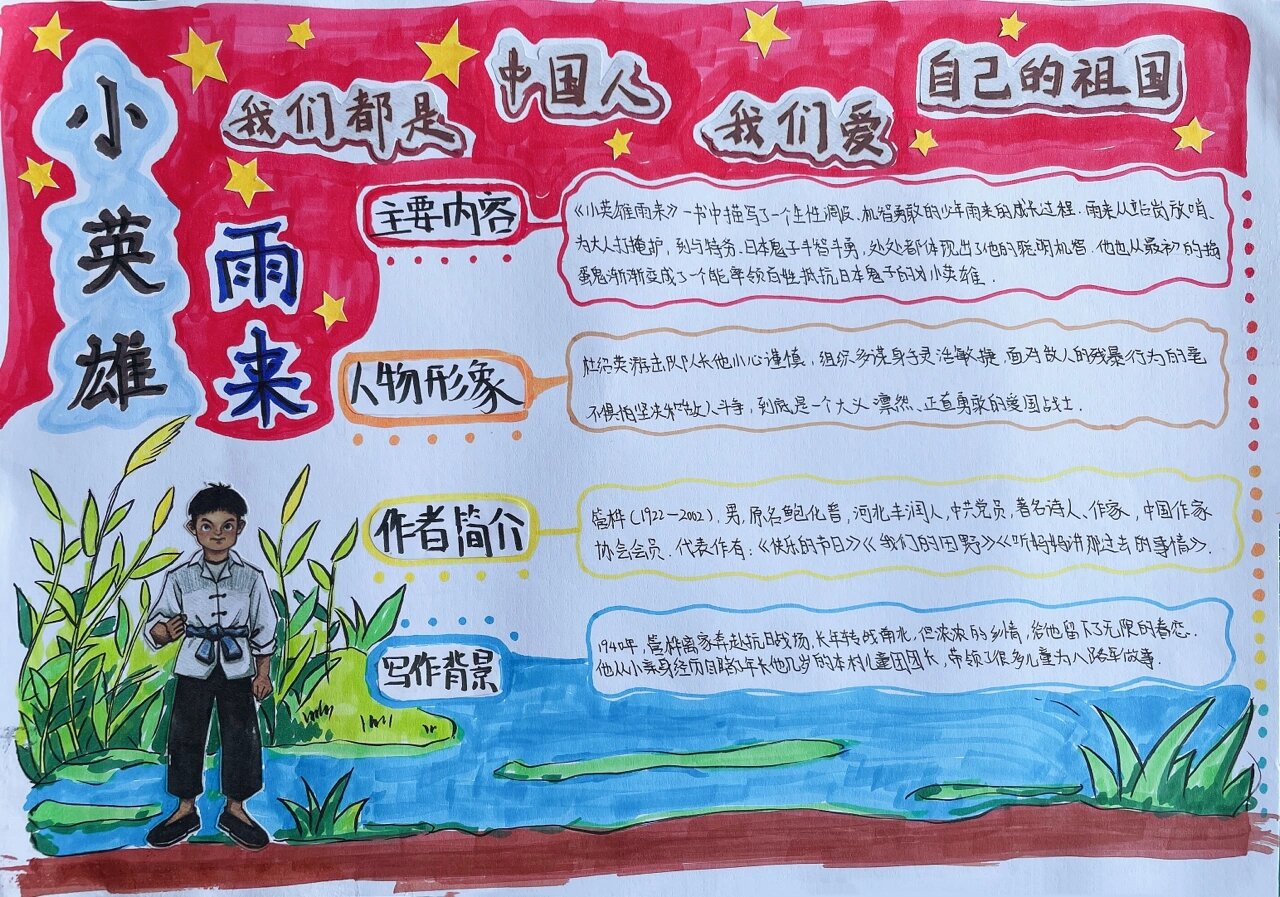 小英雄
雨来
我们都是
中国人
我们爱
自己的祖国
主要内容
《小英雄雨来》一书中描写了一个生性调皮、机智勇敢的少年雨来的成长过程.雨来从站岗放哨、
为大人打掩护,到与特务、日本鬼子斗智斗勇,处处都体现出了他的聪明机智.他也从最初的捣
蛋鬼渐渐变成了一个能率领百姓抵抗日本鬼子的小英雄.
人物形象
杜绍英游击队队长他小心谨慎,组织多谋身手灵活敏捷.面对敌人的残暴行为的毫
不惧怕坚决和敌人斗争,到底是一个大义凛然、正直勇敢的爱国战士.
作者简介
管桦(1922—2002),男,原名鲍化普,河北丰润人,中共党员,著名诗人、作家,中国作家
协会会员.代表作有:《快乐的节日》《我们的田野》《听妈妈讲那过去的事情》.
写作背景
1940年,管桦离家奔赴抗日战场,长年转战南北,但浓浓的乡情,给他留下了无限的眷恋.
他从小亲身经历目睹年长他几岁的本村儿童团团长,带领了很多儿童为八路军做事.